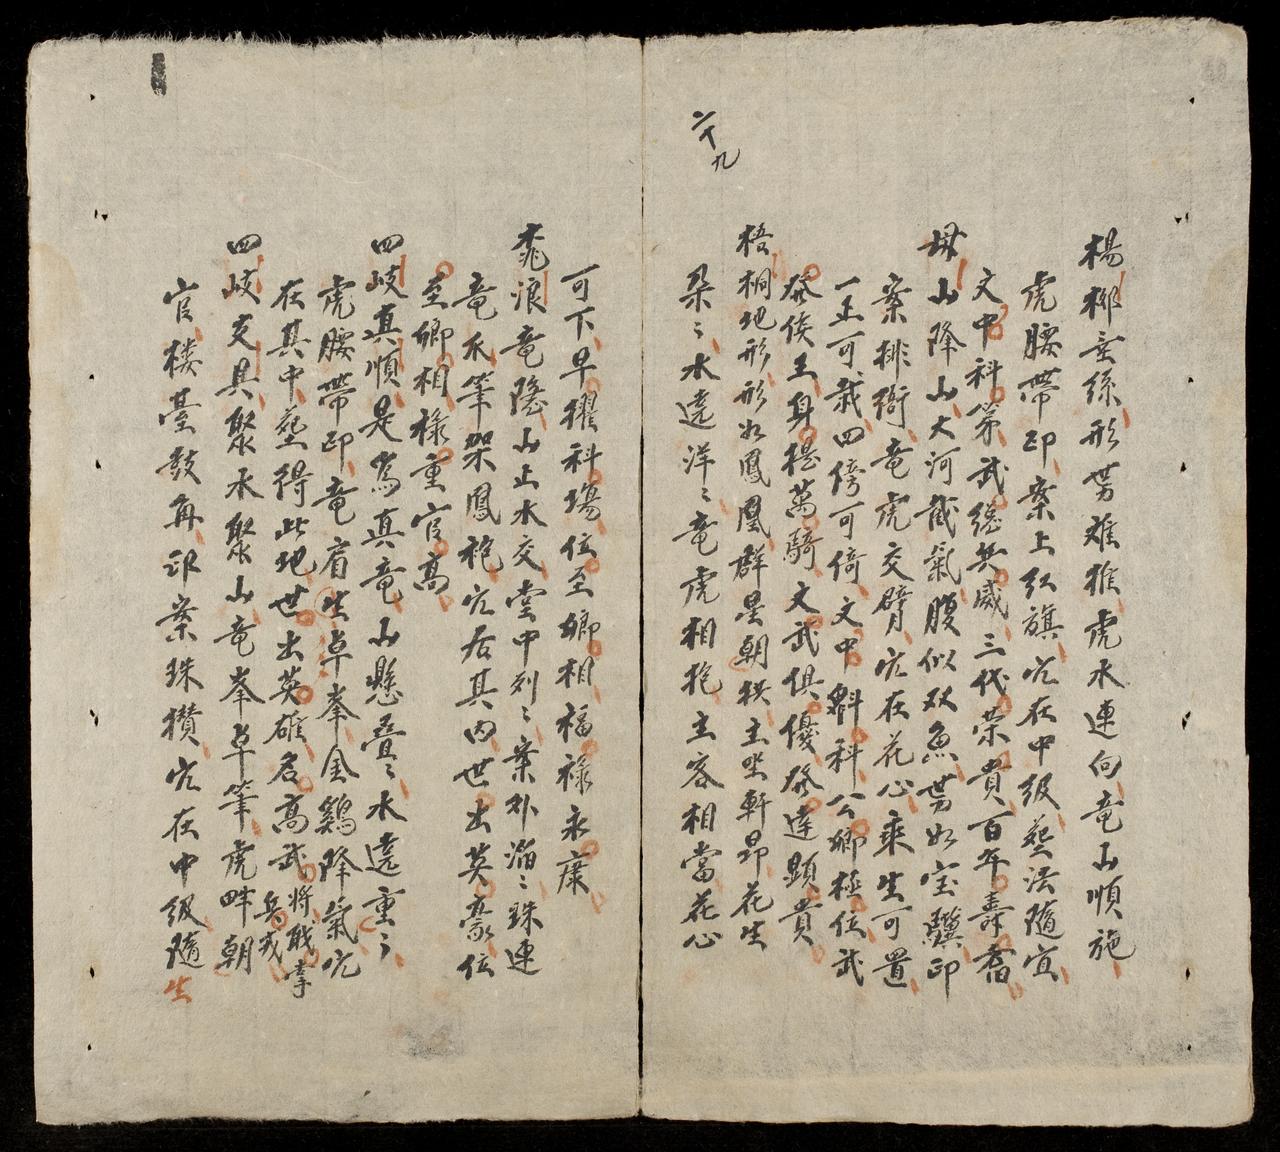 楊柳垂絲形势难推虎水連向竜山順施
虎腰帶印案上紅旗穴在中級葬法隨宜
文中科第武總兵威三代荣貴百年壽耆
母山降山大河截氣腹似双魚势如宝驥印
案排衙竜虎交臂穴在花心乘生可置
一正可裁四傍可倚文中魁科公卿極位武
發侯王身提萬騎文武俱優發達顕貴
梧桐地形形如鳳凰群星朝拱主坐軒昂花生
朶〻水遶洋〻竜虎相抱主客相當花心
二十九
可下早擢科場位至卿相福禄永康
浪竜隐山止水交堂中列〻案外滔〻珠連
竜爪筆架鳳袍穴居其内世出英豪位
至卿相禄重官高
四岐真順是為真竜山懸叠〻水遶重〻
虎腰帶印竜肩生卓峯金鷄降氣穴
在其中葬得此地世出英雄名高武将職掌兵戎
四岐支具聚水聚山竜峯卓筆虎畔朝
官楼臺鼓角印案珠攅穴在中級隨生